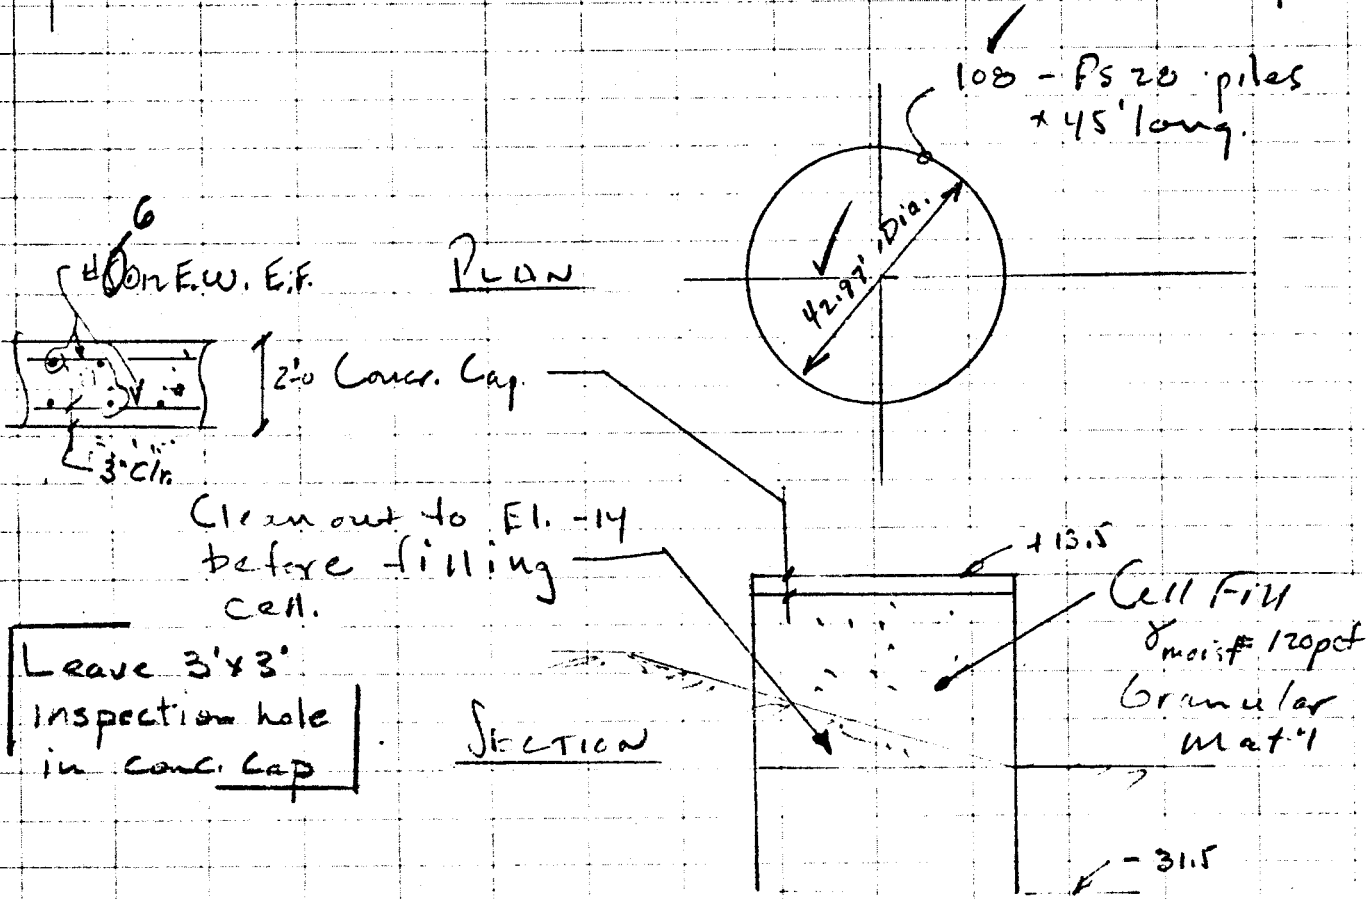 108 - PS 28 piles
x 45' long.
42.97' Dia.
6
# on E.W. E.F.
PLAN
2'-0 Concr. Cap.
3" Clr.
Clean out to El. -14
before filling
cell.
+13.5
Cell Fill
γmoist = 120 pcf
Granular
Mat'l
Leave 3'x3'
inspection hole
in conc. Cap
SECTION
- 31.5